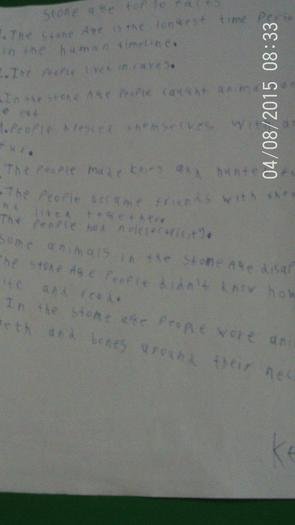 Stone age top 10 facts
1. The Stone Age is the longest time perio
in the human timeline.
2. The people lived in caves.
In the stone Age people caught anima
e eat
People dressed themselves with a
fur.
The people made knifs and hunted
The people became friends with the
nd lived together.
The people had no electricity.
Some animals in the Stone Age disap
The Stone Age people didn't know how
ite and read.
In the stone age people wore ani
eeth and bones around their nec
Ke
04/08/2015 08:33